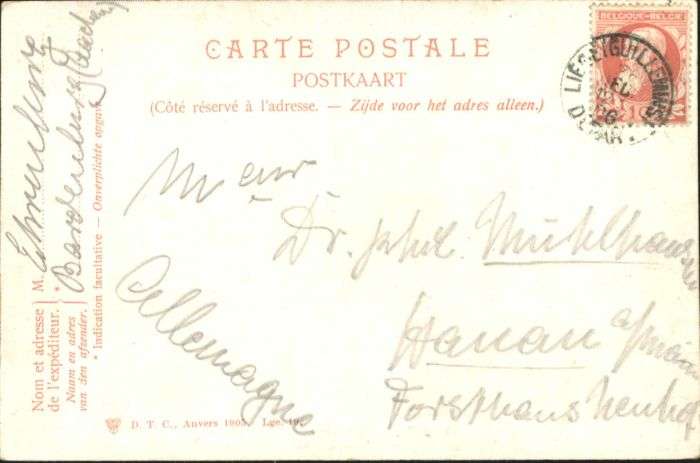 CARTE POSTALE
POSTKAART
(Côté réservé à l'adresse. — Zijde voor het adres alleen.)
BELGIQUE·BELGIË
LIEGE (GUILLEMINS)
DEPART
M eur
Dr. phil. Mühlhause
Hanau a/main
Forsthaus Neuhof
Allemagne
Nom et adresse
de l'expéditeur.
Naam en adres
van den afzender.
M.
Bardenberg (Aachen)
* Indication facultative — Onverplichte opgave
D. T. C., Anvers 1905. Lge.